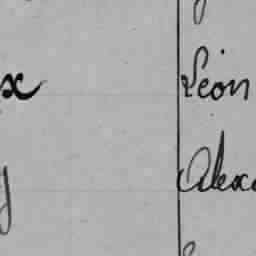 x Léon
y Alex